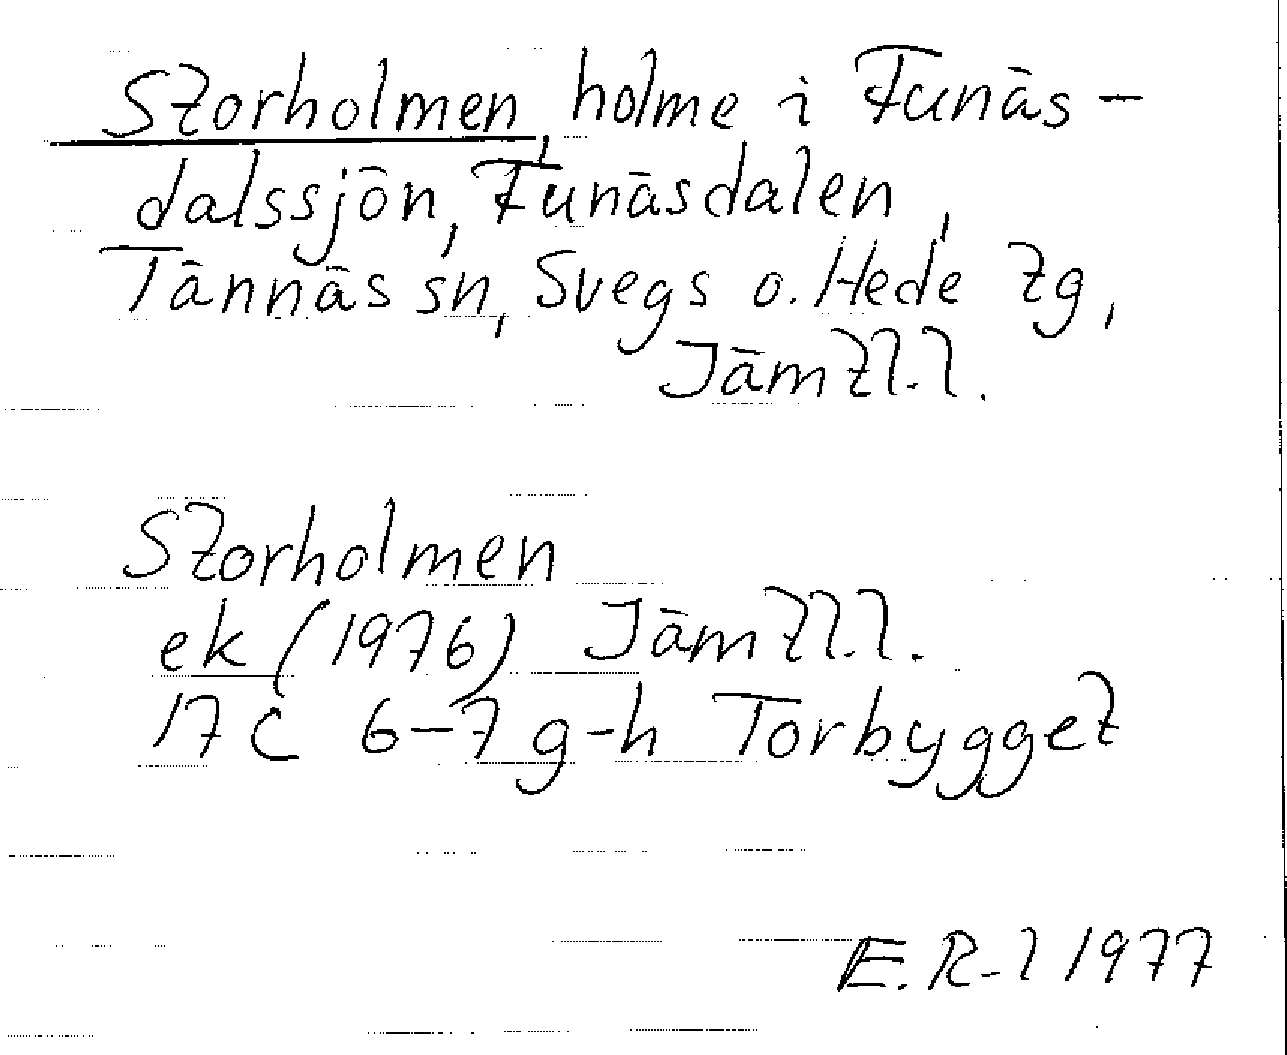 Storholmen, holme i Funäs-
dalssjön, Funäsdalen,
Tännäs sn, Svegs o. Hede tg,
Jämtl. l.
Storholmen
ek (1976) Jämtl. l.
17 C 6-7 g-h Torbygget
E. R-l 1977